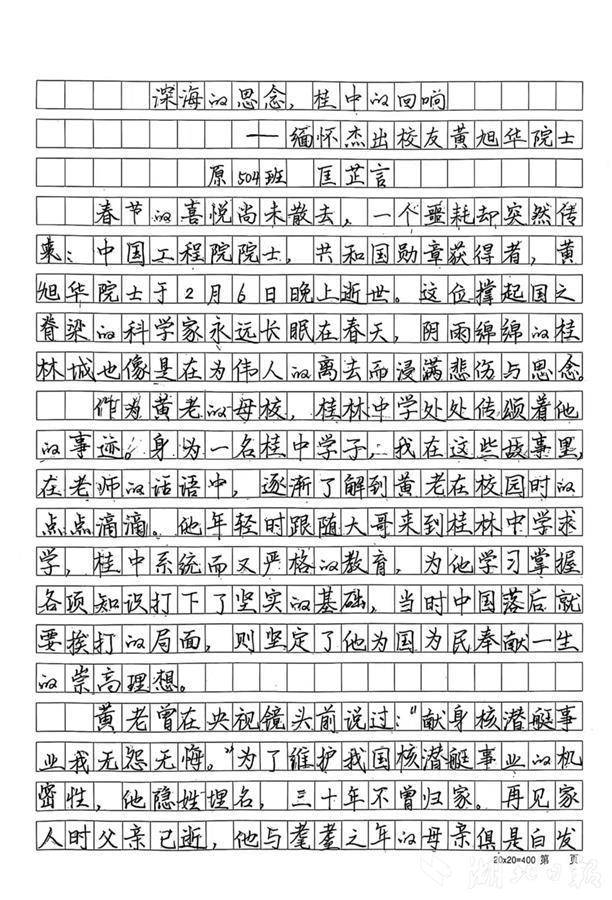 深海的思念，桂中的回响
——缅怀杰出校友黄旭华院士
原504班 匡芷言
春节的喜悦尚未散去，一个噩耗却突然传
来：中国工程院院士，共和国勋章获得者，黄
旭华院士于2月6日晚上逝世。这位撑起国之
脊梁的科学家永远长眠在春天，阴雨绵绵的桂
林城也像是在为伟人的离去而浸满悲伤与思念。
作为黄老的母校，桂林中学处处传颂着他
的事迹。身为一名桂中学子，我在这些故事里，
在老师的话语中，逐渐了解到黄老在校园时的
点点滴滴。他年轻时跟随大哥来到桂林中学求
学，桂中系统而又严格的教育，为他学习掌握
各项知识打下了坚实的基础，当时中国落后就
要挨打的局面，则坚定了他为国为民奉献一生
的崇高理想。
黄老曾在央视镜头前说过："献身核潜艇事
业我无怨无悔。"为了维护我国核潜艇事业的机
密性，他隐姓埋名，三十年不曾归家。再见家
人时父亲已逝，他与耄耋之年的母亲俱是白发
20×20=400 第 页
湖北日报